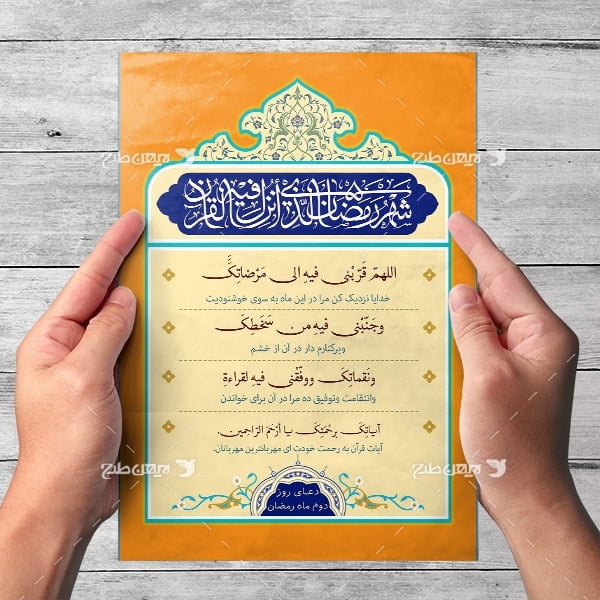 شهر رمضان الذي أنزل فيه القرآن
اللهمّ قَرّبْني فيهِ الى مَرْضاتِكَ
خدایا نزدیک کن مرا در این ماه به سوی خوشنودیت
وجَنّبْني فيهِ من سَخَطِكَ
وبرکنارم دار در آن از خشم
ونَقماتِكَ ووفّقْني فيهِ لقراءةِ
وانتقامت وتوفیق ده مرا در آن برای خواندن
آياتِكَ برحْمَتِكَ يا أرْحَمَ الرّاحِمين.
آیات قرآن به رحمت خودت ای مهربانترین مهربانان.
دعای روز
دوم ماه رمضان
میهن طرح
میهن طرح
میهن طرح
میهن طرح